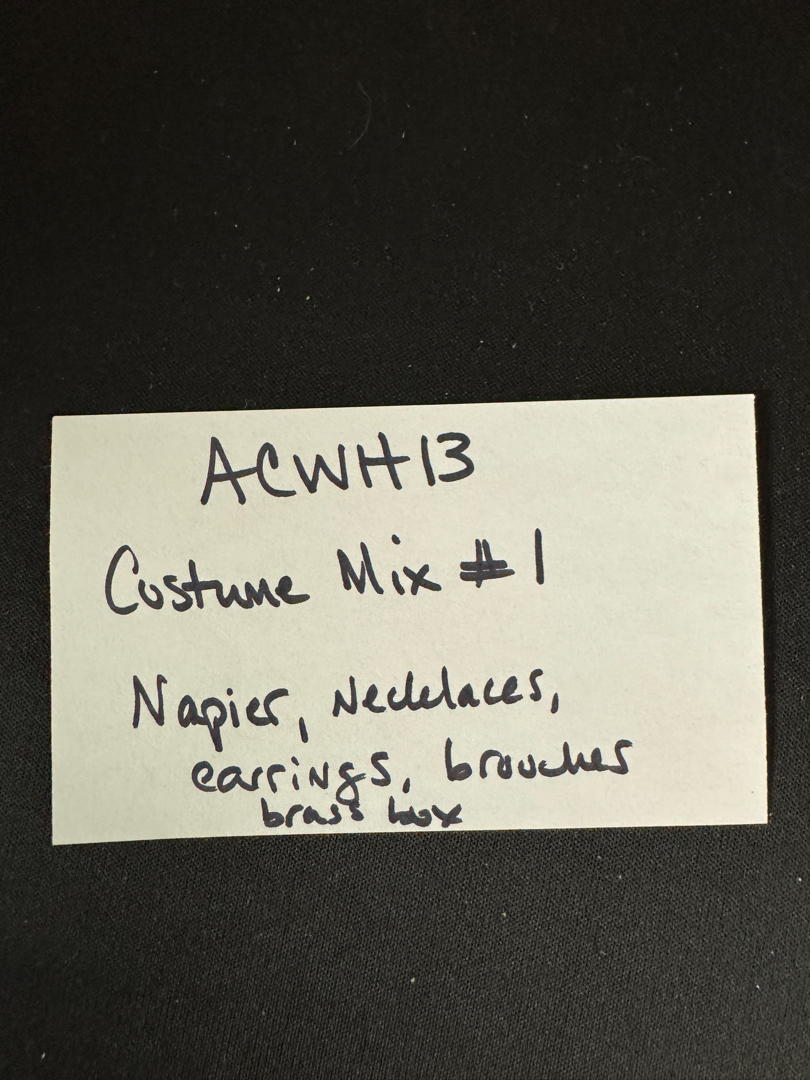 ACWH13
Costume Mix #1
Napier, Necklaces,
earrings, brooches
brass box